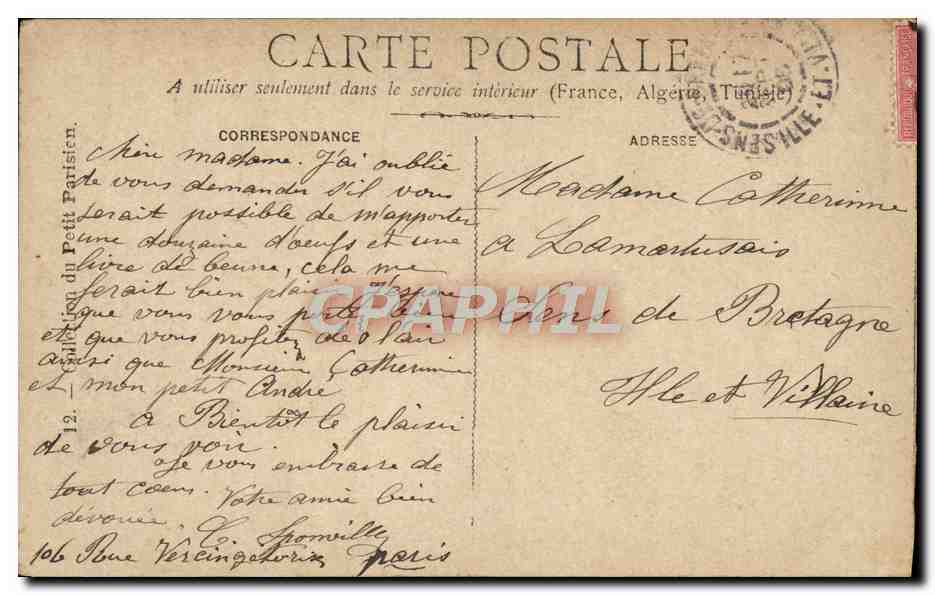 CARTE POSTALE
A utiliser seulement dans le service intérieur (France, Algérie, Tunisie)
CORRESPONDANCE
chère madame. J'ai oublié
de vous demander s'il vous
serait possible de m'apporter
une douzaine d'oeufs et une
livre de beurre, cela me
ferait bien plaisir J'espère
que vous vous portez bien
et que vous profitez de l'air
ainsi que Monsieur Catherinne
et mon petit André
A Bientôt le plaisir
de vous voir.
Je vous embrasse de
tout coeur. Votre amie bien
dévouée
106 Rue Vercingetorix paris
ADRESSE
Madame Catherinne
a Lamartusais
Sens de Bretagne
Ille et Villaine
12. — Collection du Petit Parisien.
CPAPHIL